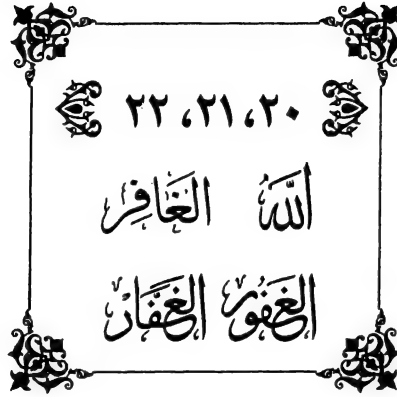 ٢٠، ٢١، ٢٢
اللَّهُ الغَافِرُ
الغَفُورُ الغَفَّارُ